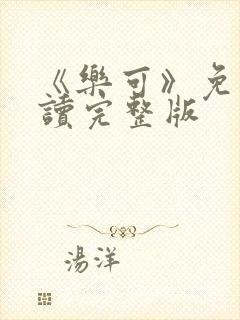 《樂可》免
讀完整版
湯洋